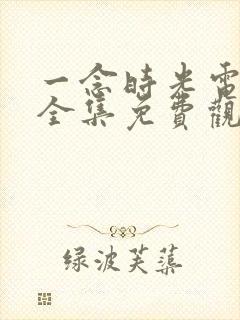 一念時光電
全集免費觀
绿波芙蕖